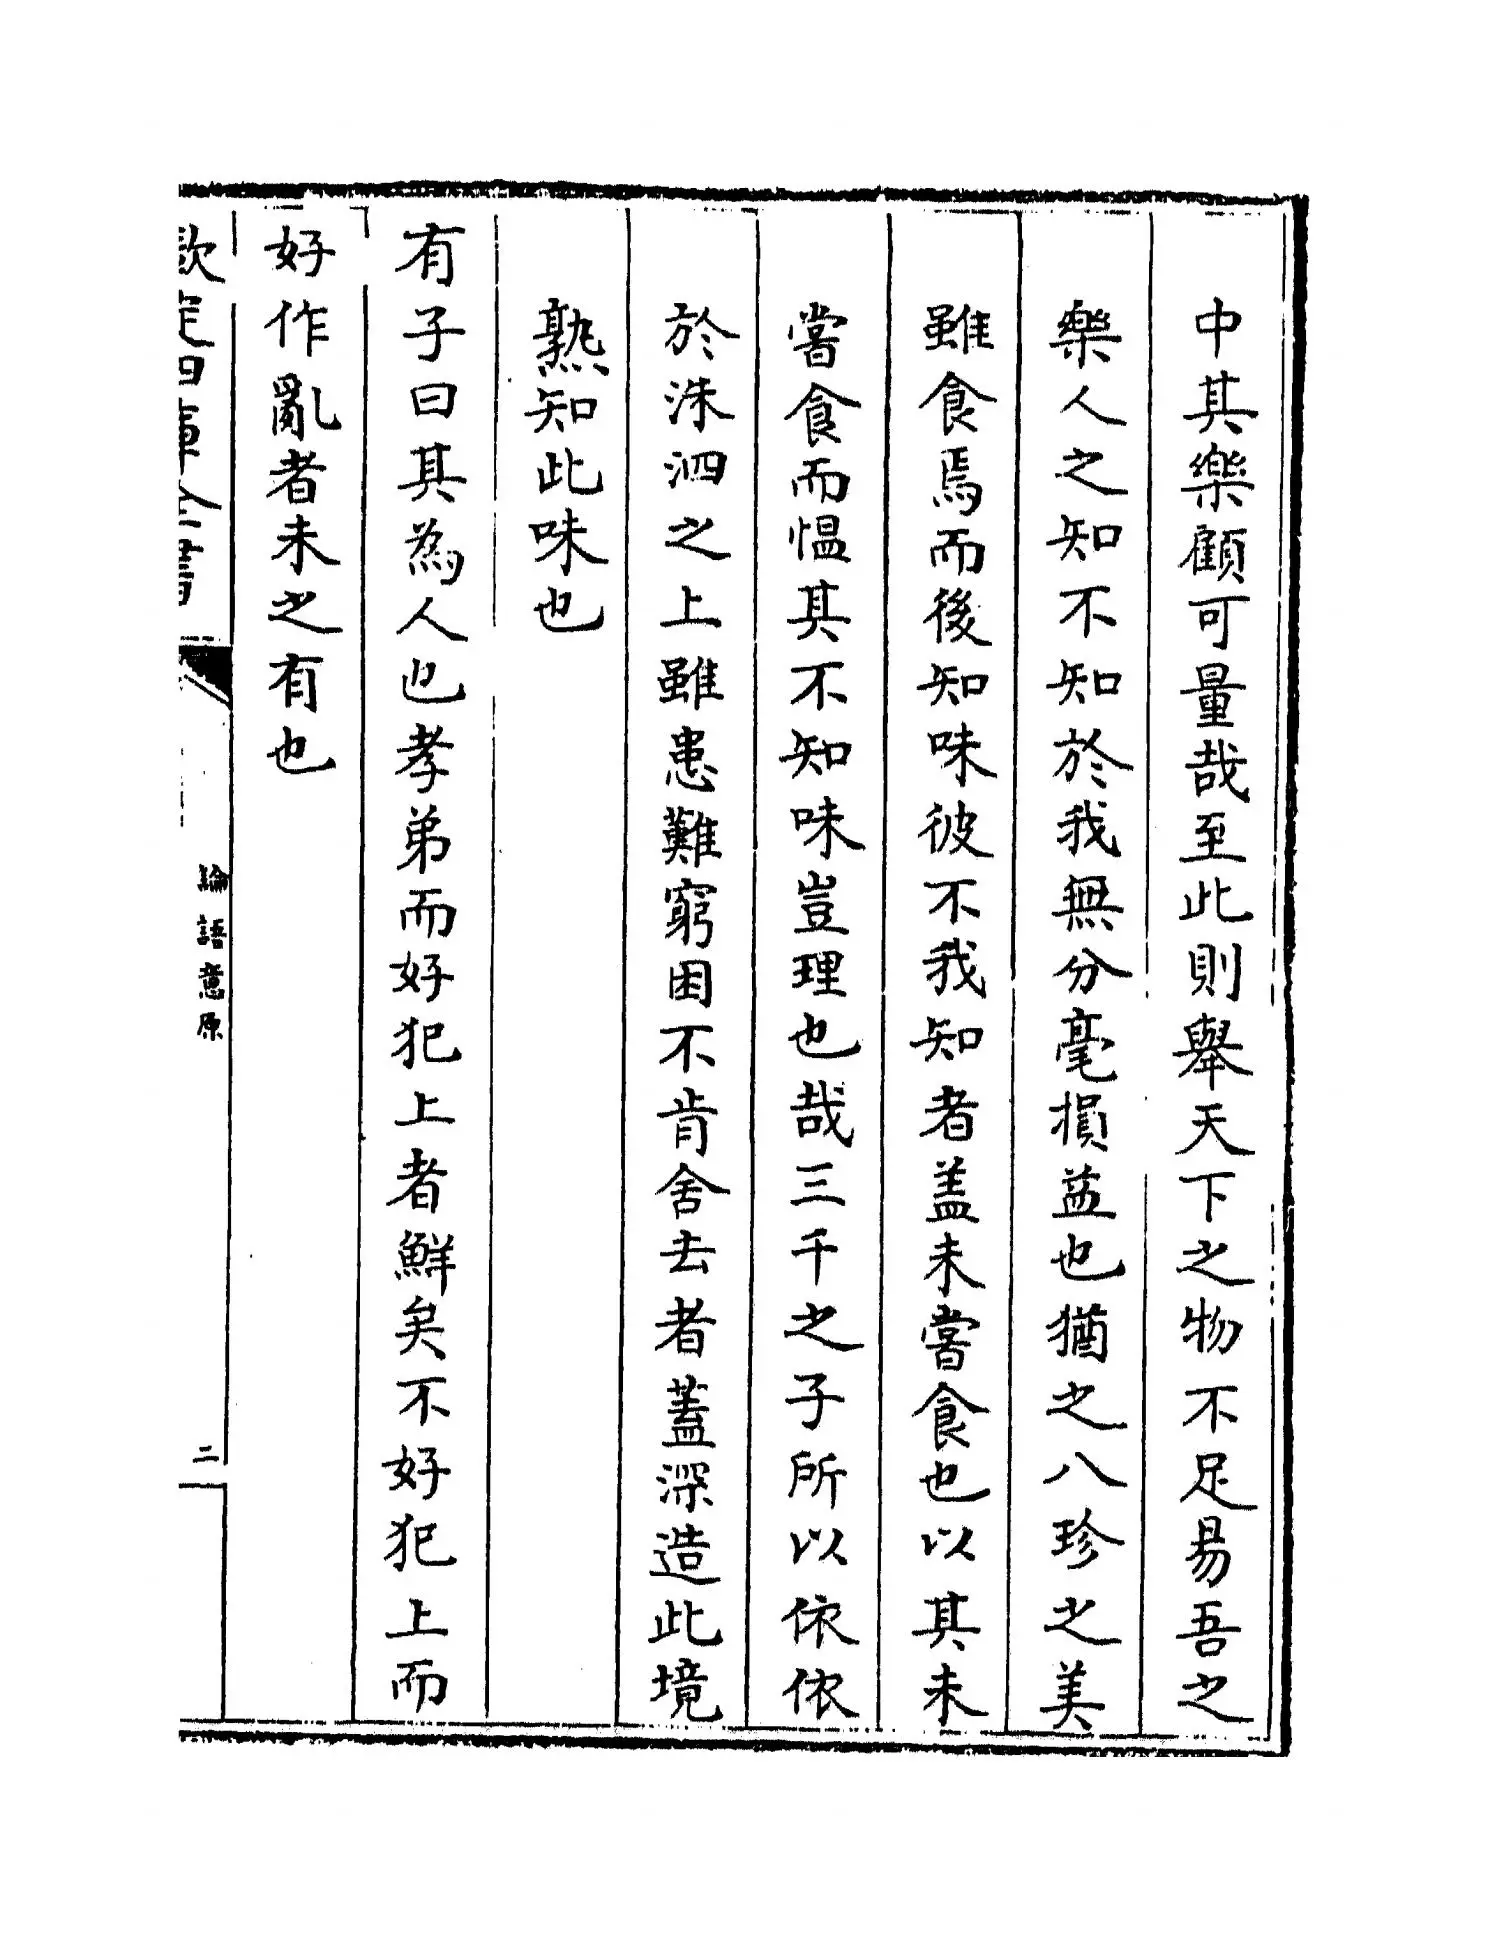 中其樂顧可量哉至此則舉天下之物不足易吾之
樂人之知不知於我無分毫損益也猶之八珍之美
雖食焉而後知味彼不我知者盖未嘗食也以其未
嘗食而愠其不知味豈理也哉三千之子所以依依
於洙泗之上雖患難窮困不肯舍去者蓋深造此境
熟知此味也
有子曰其為人也孝弟而好犯上者鮮矣不好犯上而
好作亂者未之有也
欽定四庫全書
論語意原
二